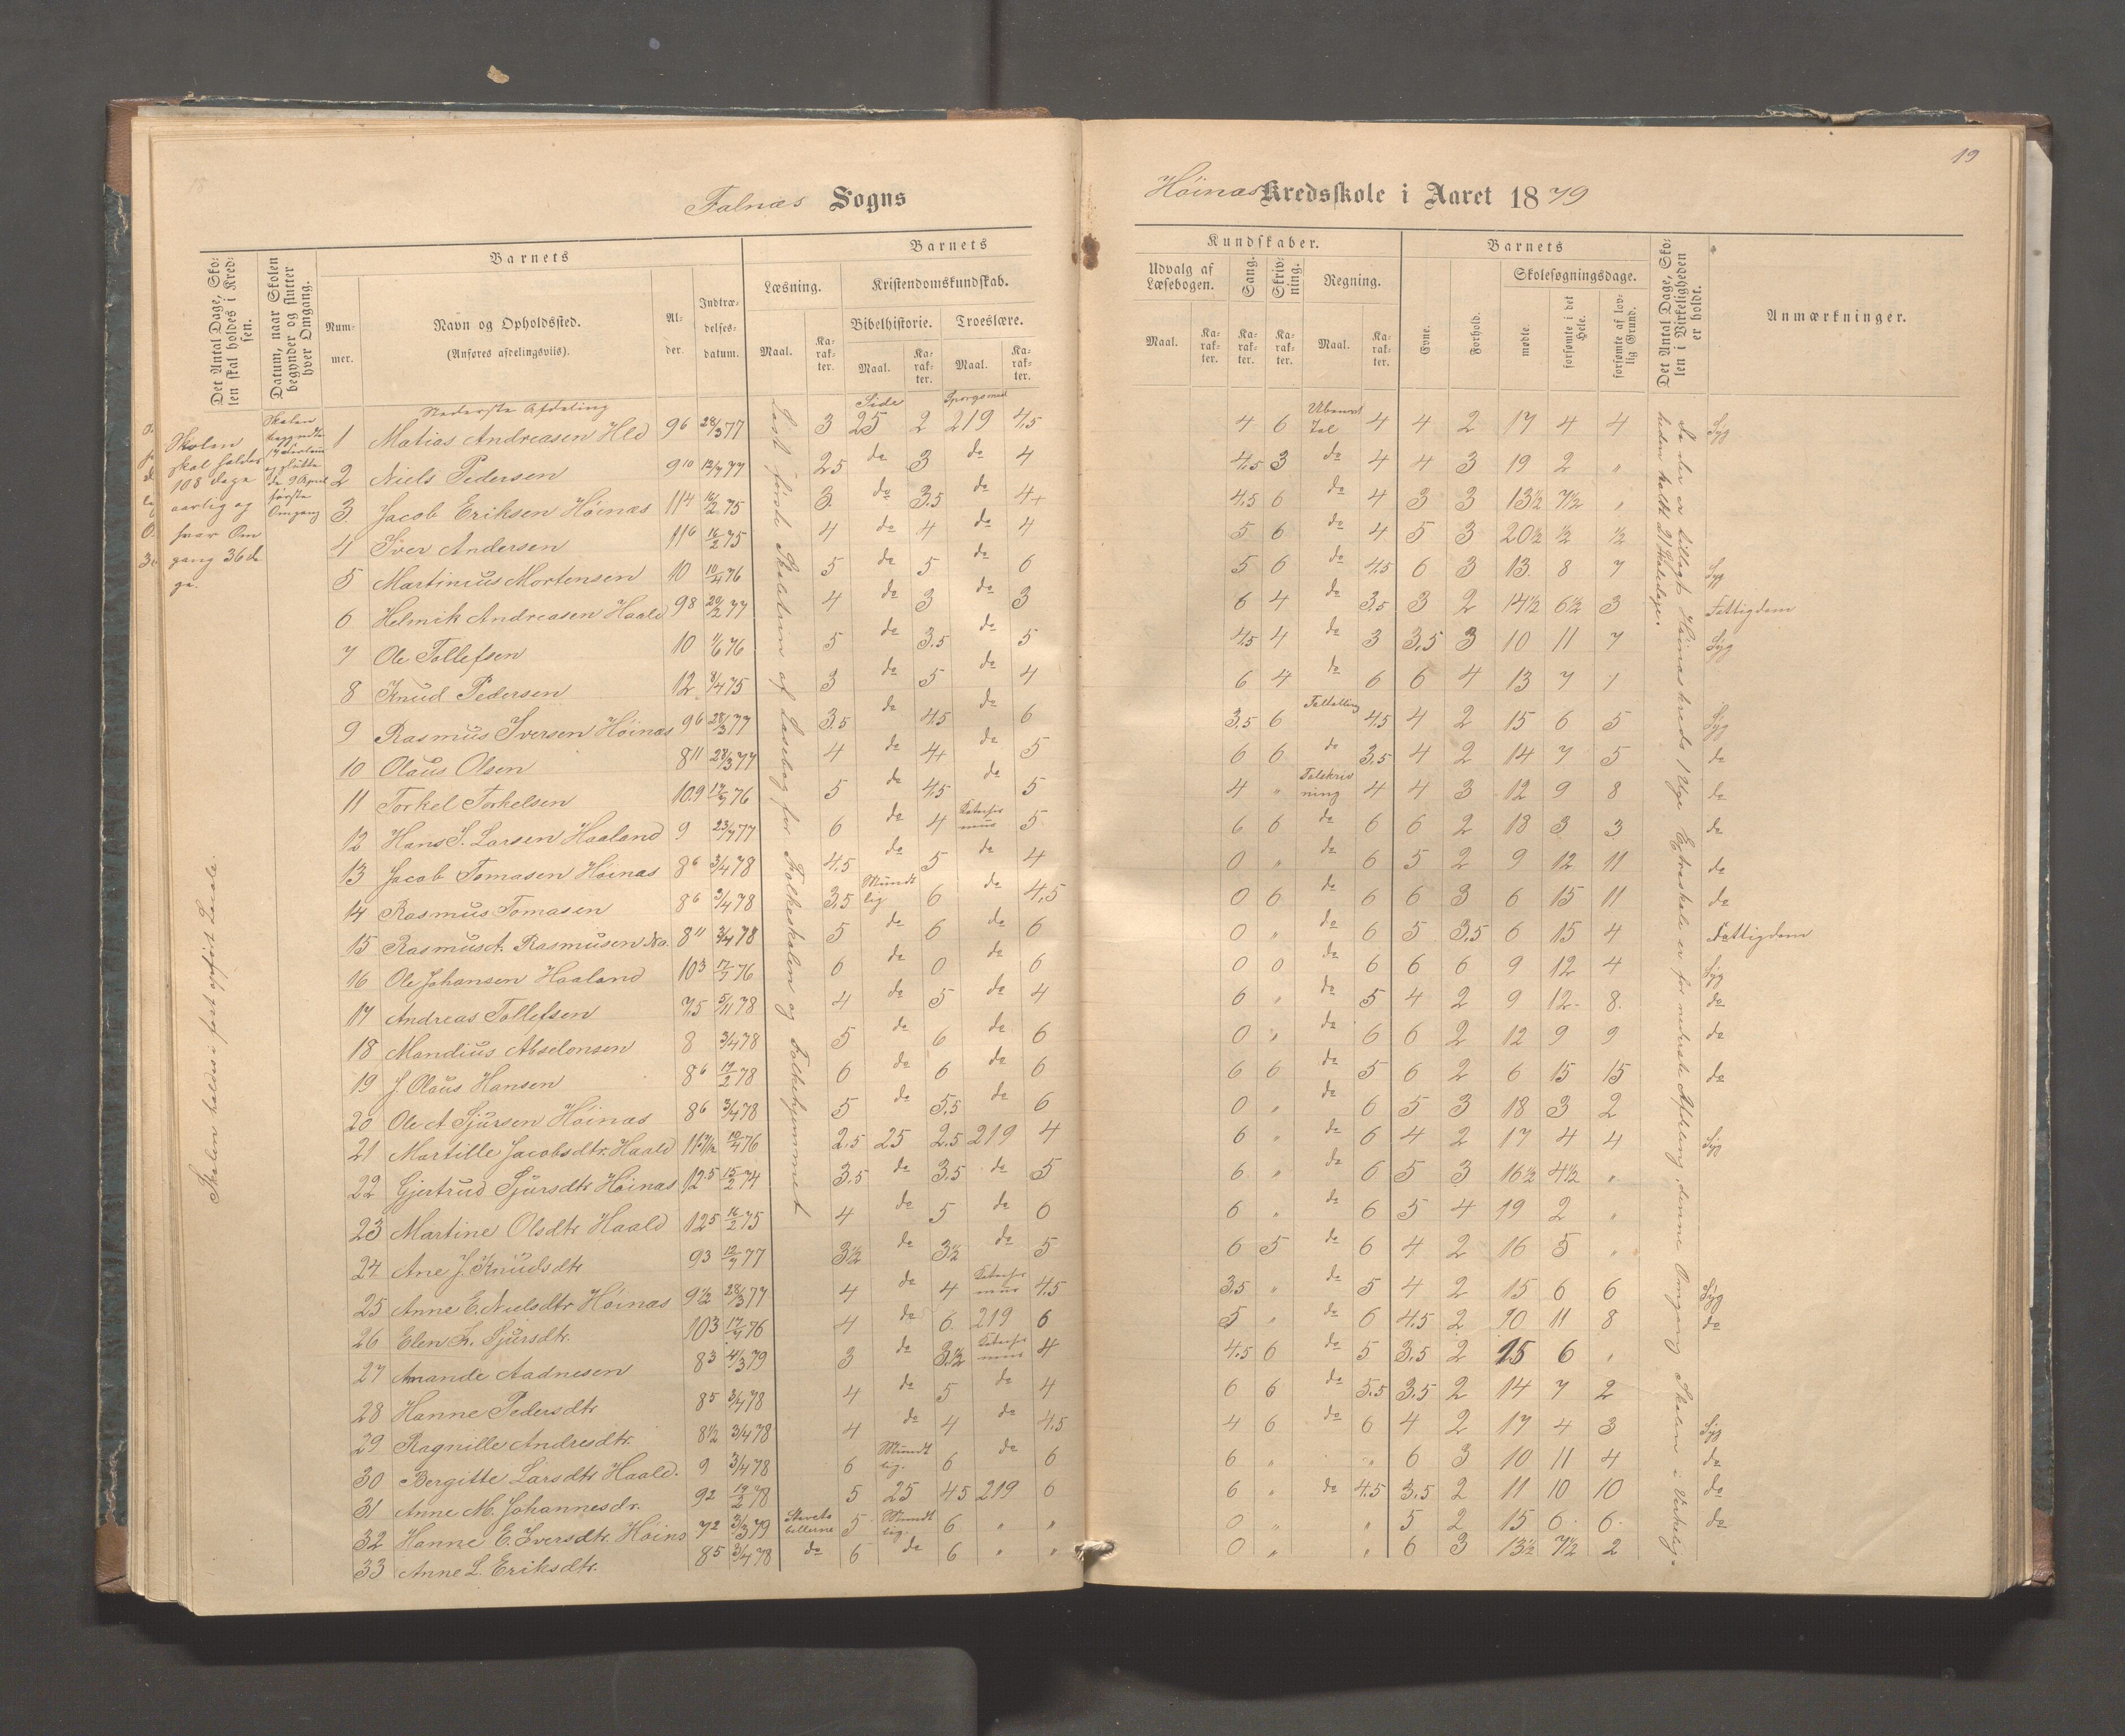 Falnæs Sogns
Høinæs Kredsskole i Aaret 1879
19
Det Antal Dage, Skolen skal holdes i Kredsen.
Datum, naar Skolen begynder og slutter hver Omgang.
Barnets
Nummer.
Navn og Opholdssted.
(Anføres afdelingsviis).
Alder.
Indtrædelsesdatum.
Barnets
Læsning.
Maal.
Karakter.
Kristendomskundskab.
Bibelhistorie.
Maal.
Karakter.
Troeslære.
Maal.
Karakter.
Kundskaber.
Udvalg af Læsebogen.
Maal.
Karakter.
Sang.
Karakter.
Skrivning.
Karakter.
Regning.
Maal.
Karakter.
Barnets
Evne.
Forhold.
Skolesøgningsdage.
mødte.
forsømte i det Hele.
forsømte af lovlig Grund.
Det Antal Dage, Skolen i Virkeligheden er holdt.
Anmærkninger.
Skolen
skal holdes
108 dage
aarlig og
hver Om
gang 36 da
ge.
Skolen
begyndte
og slutte
de 9 April
første
Omgang
Skolen holdes i fast opført Locale.
Nederste Afdeling
Læst første Skoletrin af Læsebog for Folkeskolen og Folkehjemmet
Side
Spørgsmaal
1 Matias Andreasen Hld 9 6 28/3 77 3 25 2 219 4,5 4 6 Ubenævnt Tal 4 4 2 17 4 4 Syg
2 Niels Pedersen 9 10 12/7 77 2 5 do 3 do 4 4,5 3 do 4 4 3 19 2 "
3 Jacob Eriksen Høinæs 11 4 16/2 75 3. do 3.5 do 4+ 4,5 6 do 4 3 3 13½ 7½ "
4 Iver Andersen 11 6 16/2 75 4 do 4 do 4 5 6 do 4 5 3 20½ ½ ½
5 Martinius Mortensen 10 10/4 76 5 do 5 do 6 5 6 do 4.5 6 3 13 8 7 Syg
6 Helmik Andreasen Haald 9 8 20/2 77 4 do 3 do 3 6 4 do 3,5 3 2 14½ 6½ 3 Fattigdom
7 Ole Tollefsen 10 1/6 76 5 do 3.5 do 5 4,5 4 do 3 3,5 3 10 11 7 Syg
8 Knud Pedersen 12 8/4 75 3 do 5 do 4 6 4 do 6 6 4 13 7 1
9 Rasmus Iversen Høinæs 9 6 28/3 77 3.5 do 4.5 do 6 3,5 6 Taltælling 4.5 4 2 15 6 5 Syg
10 Olaus Olsen 8 11 28/3 77 4 do 4+ do 5 6 6 do 3.5 4 2 14 7 5 do
11 Torkel Torkelsen 10.9 17/7 76 5 do 4,5 do 5 4 " Talskrivning 4 4 3 12 9 8 do
12 Hans S. Larsen Haaland 9 23/7 77 6 do 4 5 6 6 do 6 6 2 18 3 3 do
13 Jacob Tomasen Høinæs 8 6 3/4 78 4.5 do 5 do 4 0 " do 6 5 2 9 12 11 do
14 Rasmus Tomasen 8 6 3/4 78 3,5 Mundtlig 6 do 4,5 0 6 do 6 6 3 6 15 11 do
15 Rasmus A. Rasmusen 8 11 3/4 78 5 do 6 do 6 0 " do 6 5 3,5 6 15 4 Fattigdom
16 Ole Johansen Haaland 10 3 17/7 76 6 do 0 do 6 0 0 do 6 6 6 9 12 4 Syg
17 Andreas Tollefsen 7,5 5/11 78 4 do 5 do 4 6 " do 5 4 2 9 12 8. do
18 Mandius Abselonsen 8 3/4 78 5 do 6 do 6 0 " do 6 6 2 12 9 9 do
19 J. Olaus Hansen 8 6 19/2 78 6 do 6 do 6 6 6 do 5 6 2 6 15 15 do
20 Ole A Sjursen Høinæs 8 6 3/4 78 5 do 5,5 do 6 0 " do 6 5 3 18 3 2
21 Martille Jacobsdtr. Haald 10/4 76 2.5 25 2.5 219 4 6 " do 6 4 2 17 4 4 Syg
22 Gjertrud Sjursdtr Høinæs 12 5 15/2 74 3.5 do 3.5 do 5 6 " do 6 5 3 16½ 4½ "
23 Martine Olsdtr Haald 12 5 16/2 75 4 do 5 do 6 6 " do 6 5 4 19 2 "
24 Ane J. Knudsdtr 9 3 12/7 77 3½ do 3½ do 5 6 5 do 6 4 2 16 5 "
25 Anne E. Nielsdtr Høinæs 9½ 28/3 77 4 do 4 4.5 3,5 " do 5 4 2 15 6 6 Syg
26 Elen K. Sjursdtr. 10 3 17/7 76 4 do 6. 219 6 5 " do 6 4.5 2 10 11 8 do
27 Amande Aadnesen 8 3 4/3 79 3 do 3.½ 4 4.5 6 do 5 3.5 2 15 6 "
28 Hanne Pedersdtr 8 5 3/4 78 4 do 5 do 4 6 6 do 5.5 3.5 2 14 7 2
29 Ragnille Andresdtr. 8½ 3/4 78 4 do 4 do 4.5 4 6 do 6 4 2 17 4 3 Syg
30 Bergitte Larsdtr Haald. 9 3/4 78 6 Mundtlig. 6 do 6 6 " " 6 3 10 11 4 do
31 Anne M. Johannesdr. 9 2 19/2 78 5 25 4 5 219 6 6 " do 4.5 3.5 2 11 10 10 do
32 Hanne E. Iversdtr. Høinæs 7 2 3/3 79 5 Mundtlig. 6 " " 0 " " 5 2 15 6. 6. do
33 Anne L. Eriksdtr. 8 5 3/4 78 do 6 do 6 " " 0 " " 6 3 13½ 7½ 2
Da der er tillagt Høinæs kreds 1 Uge Extraskole er for nederste Afdeling, denne Omgang Skolen i Virkelig-
heden holdt 21 Skoledage.